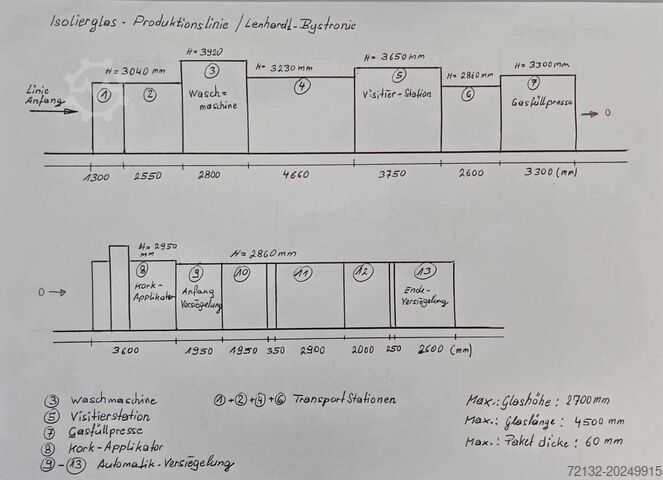 Isolierglas - Produktionslinie / Lenhardt-Bystronic
H = 3040 mm
H = 3920
H = 3230 mm
H = 3650 mm
H = 2860 mm
H = 3300 mm
Linie Anfang
1
2
3 Wasch= maschine
4
5 Visitier-Station
6
7 Gasfüllpresse
0
1300 2550 2800 4660 3750 2600 3300 (mm)
H = 2950 mm
H = 2860 mm
0
8 Kork-Applikator
9 Anfang Versiegelung
10
11
12
13 Ende-Versiegelung
3600 1950 1950 350 2900 2000 250 2600 (mm)
3 Waschmaschine
5 Visitierstation
7 Gasfüllpresse
8 Kork-Applikator
9-13 Automatik-Versiegelung
1+2+4+6 Transport Stationen
Max.: Glashöhe: 2700 mm
Max.: Glaslänge: 4500 mm
Max.: Paket dicke: 60 mm
72132-20249915